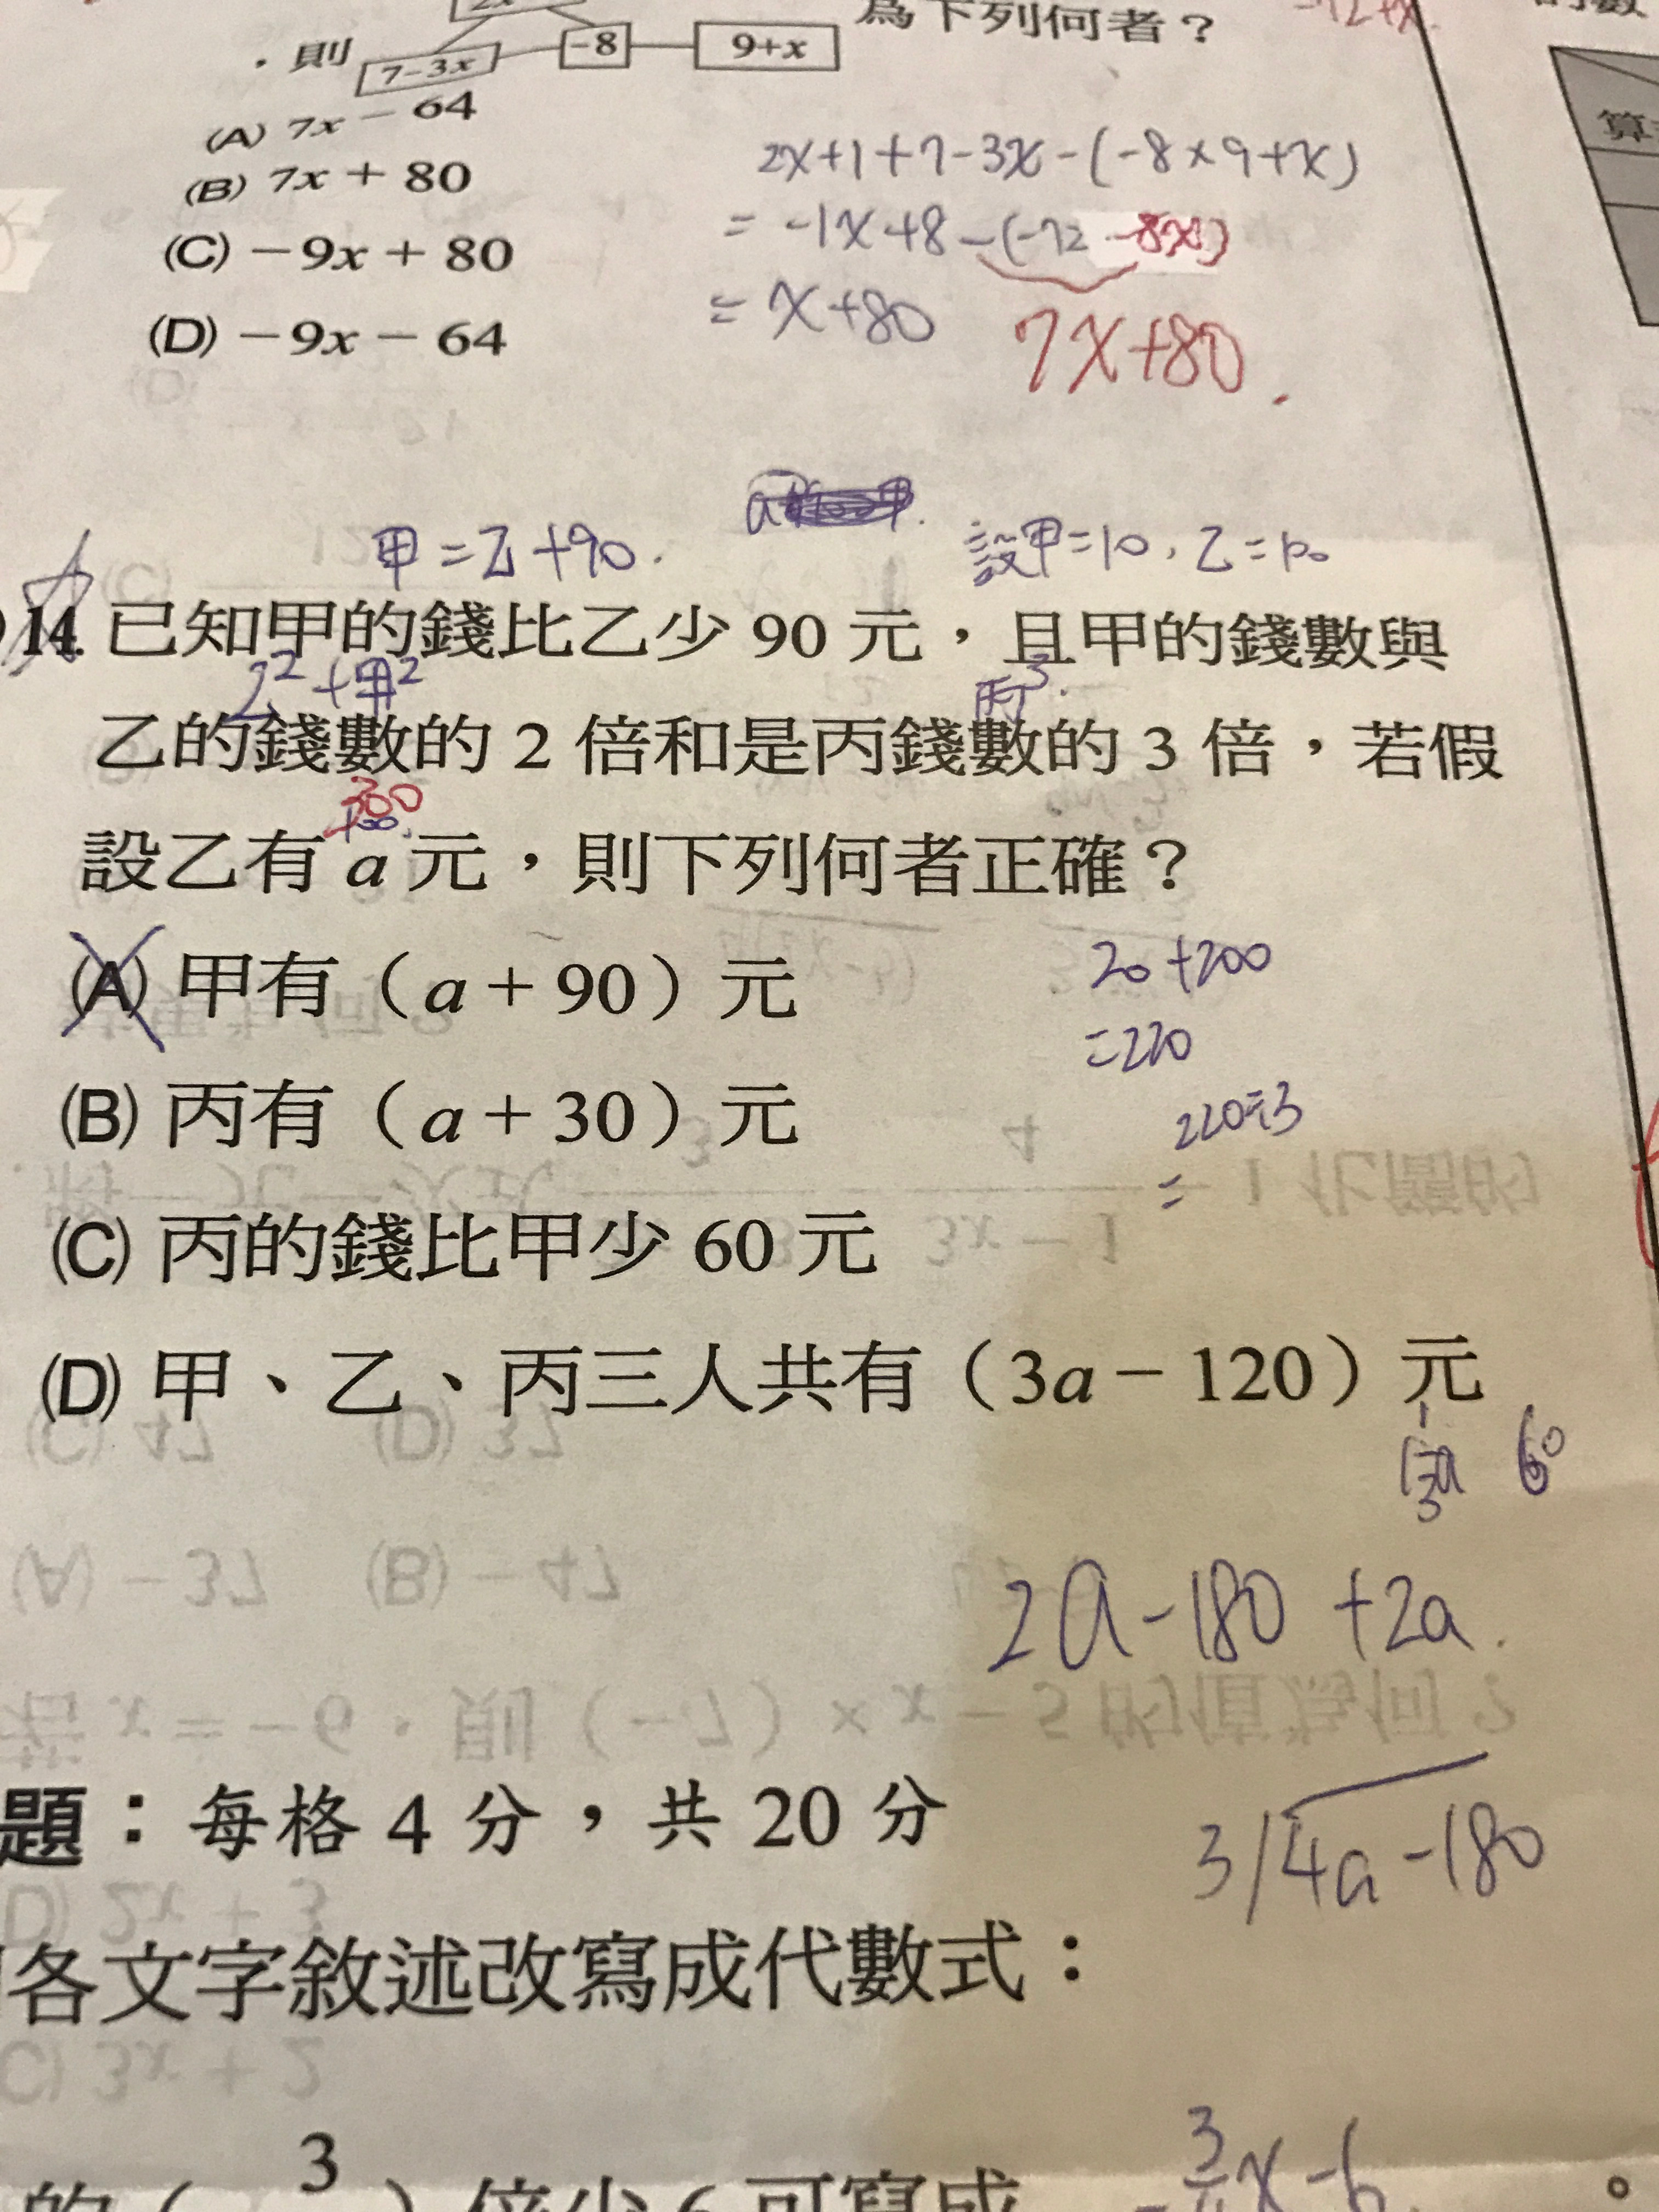 為下列何者?
，則 7-3x -8 9+x
(A) 7x-64
(B) 7x+80
(C) -9x+80
(D) -9x-64
2x+1+7-3x-(-8×9+x)
= -1x+8-(-72-8x)
= x+80 7x+80.
甲=乙+90.
設甲=10,乙=100
14. 已知甲的錢比乙少 90 元，且甲的錢數與
乙²+甲² 丙³
乙的錢數的 2 倍和是丙錢數的 3 倍，若假
300
100
設乙有 a 元，則下列何者正確?
(A) 甲有(a+90)元
(B) 丙有(a+30)元
(C) 丙的錢比甲少 60 元
(D) 甲、乙、丙三人共有(3a-120)元
20+200
=220
220÷3
=
60
2a-180+2a.
3/4a-180
題：每格 4 分，共 20 分
各文字敘述改寫成代數式：
3
倍少 6 可寫成